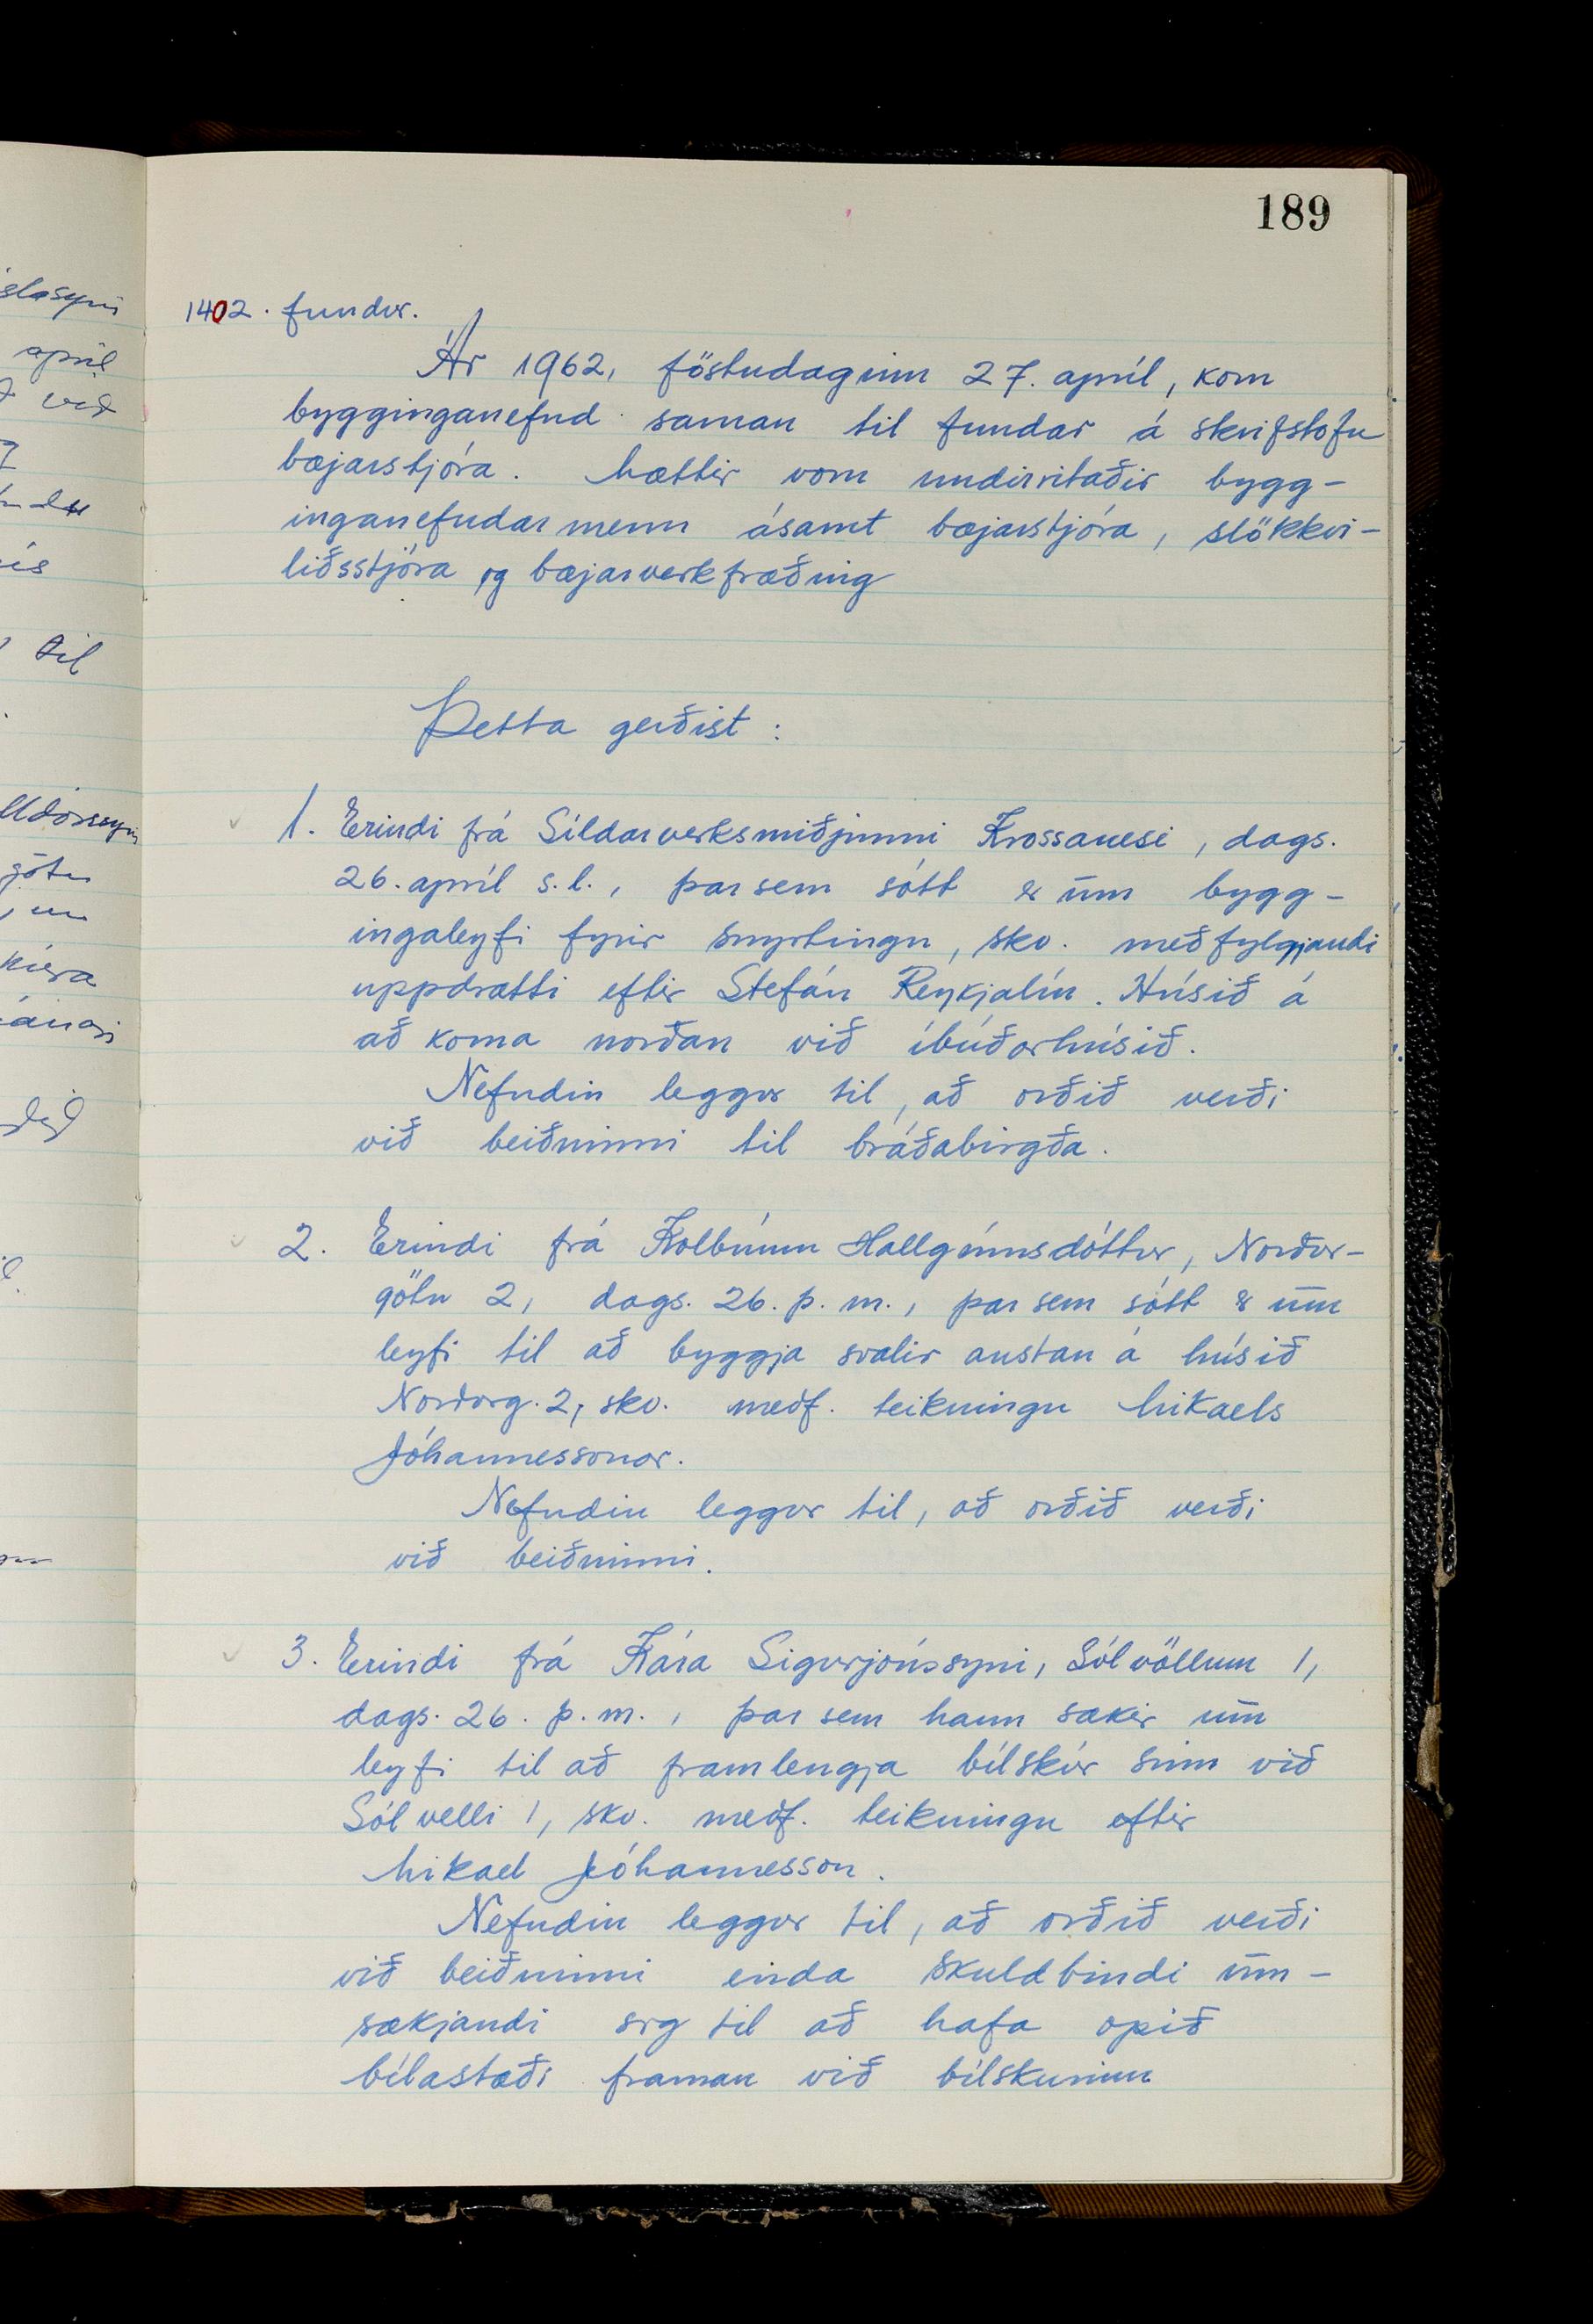 189
1402. fundur.
Ár 1962, föstudaginn 27. apríl, kom
bygginganefnd saman til fundar á skrifstofu
bæjarstjóra. Mættir voru undirritaðir bygg-
inganefndarmenn ásamt bæjarstjóra, slökkvi-
liðsstjóra og bæjarverkfræðing
Þetta gerðist:
1. Erindi frá Síldarverksmiðjunni Krossanesi, dags.
26. apríl s.l., þar sem sótt er um bygg-
ingaleyfi fyrir snyrtingu, skv. meðfylgjandi
uppdrætti eftir Stefán Reykjalín. Húsið á
að koma norðan við íbúðarhúsið.
Nefndin leggur til, að orðið verði
við beiðninni til bráðabirgða.
2. Erindi frá Kolbrúnu Hallgrímsdóttur, Norður-
götu 2, dags. 26. þ.m., þar sem sótt er um
leyfi til að byggja svalir austan á húsið
Norðurg. 2, skv. meðf. teikningu Mikaels
Jóhannessonar.
Nefndin leggur til, að orðið verði
við beiðninni.
3. Erindi frá Kára Sigurjónssyni, Sólvöllum 1,
dags. 26. þ.m., þar sem hann sækir um
leyfi til að framlengja bílskúr sinn við
Sólvelli 1, skv. meðf. teikningu eftir
Mikael Jóhannesson.
Nefndin leggur til, að orðið verði
við beiðninni enda skuldbindi um-
sækjandi sig til að hafa opið
bílastæði framan við bílskúrinn
apríl
við
til